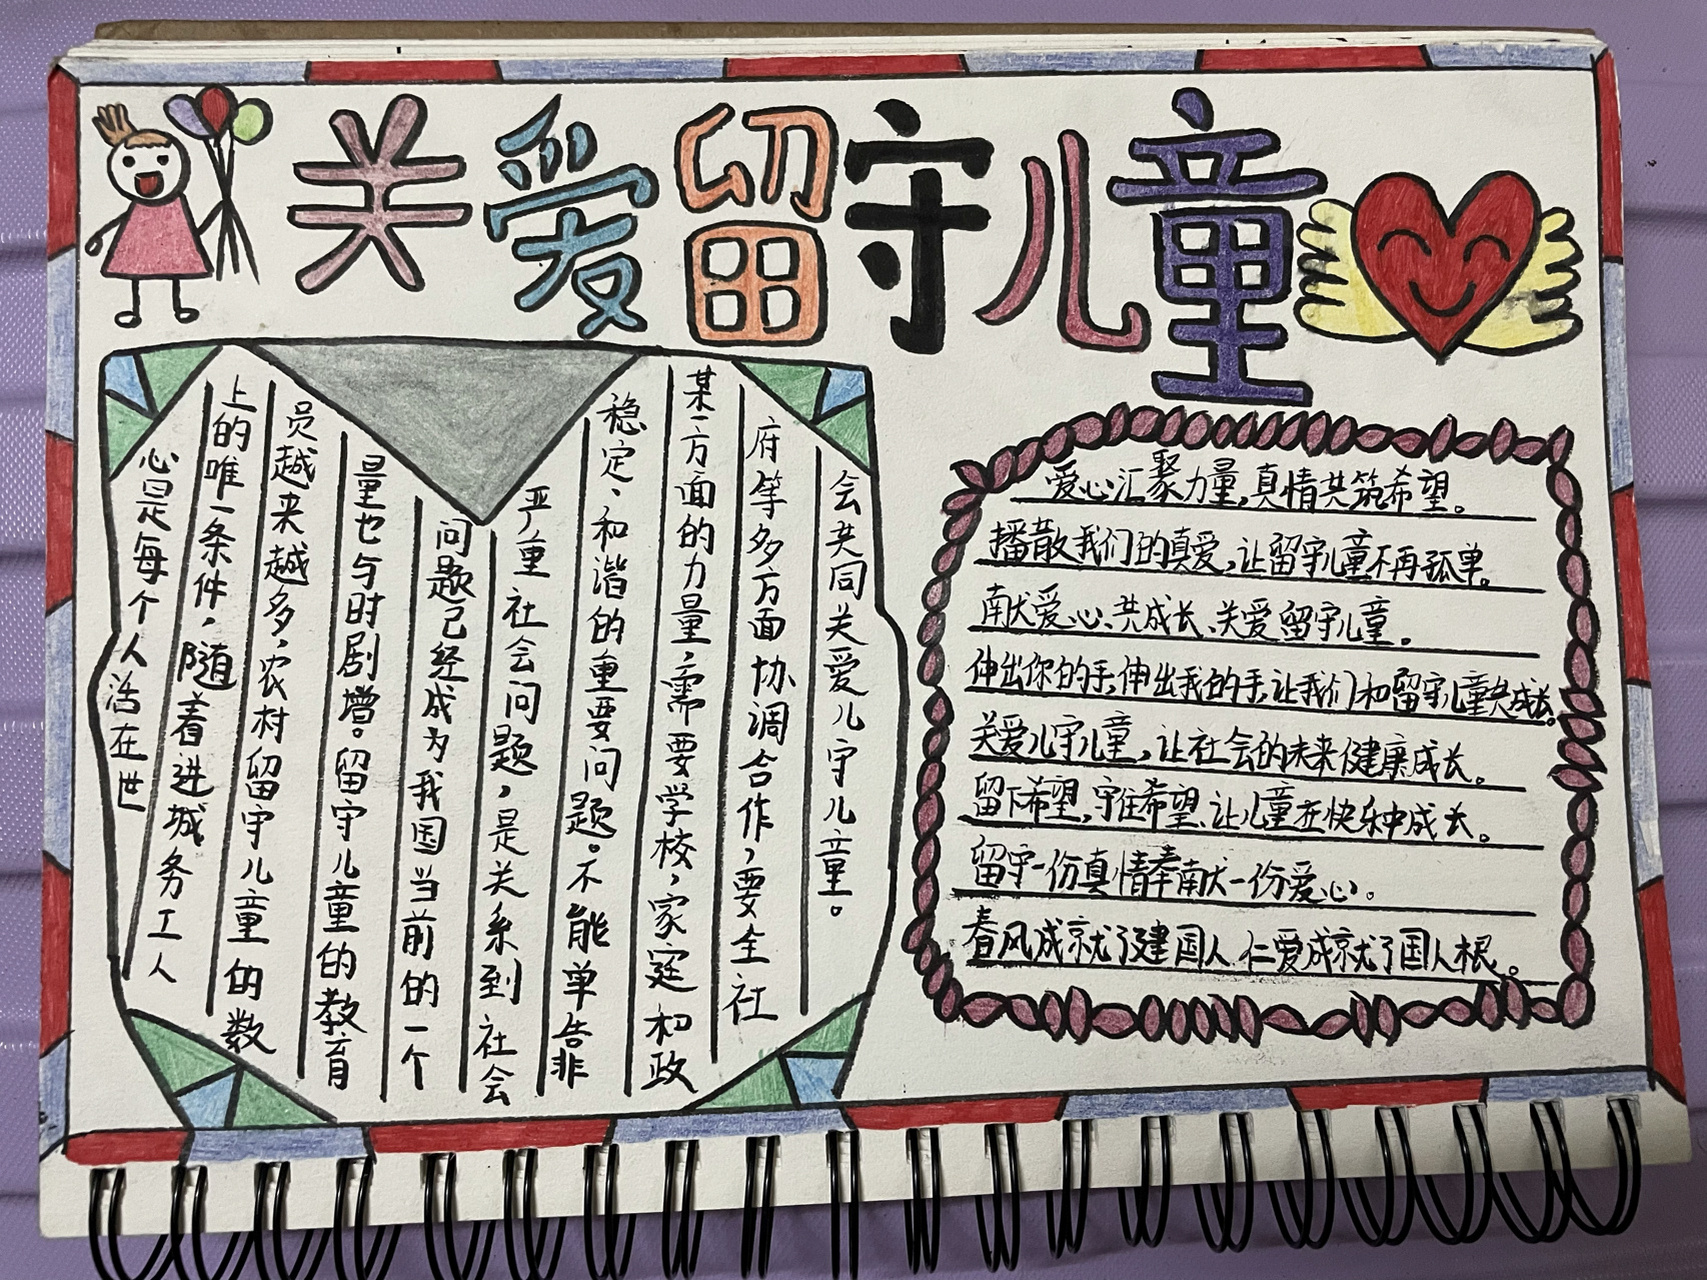 关爱留守儿童
心是每个人活在世
上的唯一条件，随着进城务工人
员越来越多，农村留守儿童的数
量也与时剧增。留守儿童的教育
问题已经成为我国当前的一个
严重社会问题，是关系到社会
稳定、和谐的重要问题。不能单告非
某一方面的力量，需要学校，家庭和政
府等多方面协调合作，要全社
会共同关爱儿守儿童。
爱心汇聚力量，真情共筑希望。
播散我们的真爱，让留守儿童不再孤单。
献爱心、共成长、关爱留守儿童。
伸出你的手，伸出我的手，让我们和留守儿童共成长。
关爱儿守儿童，让社会的未来健康成长。
留下希望，守住希望，让儿童在快乐中成长。
留守一份真情奉献一份爱心。
春风成就了建国人，仁爱成就了国人根。